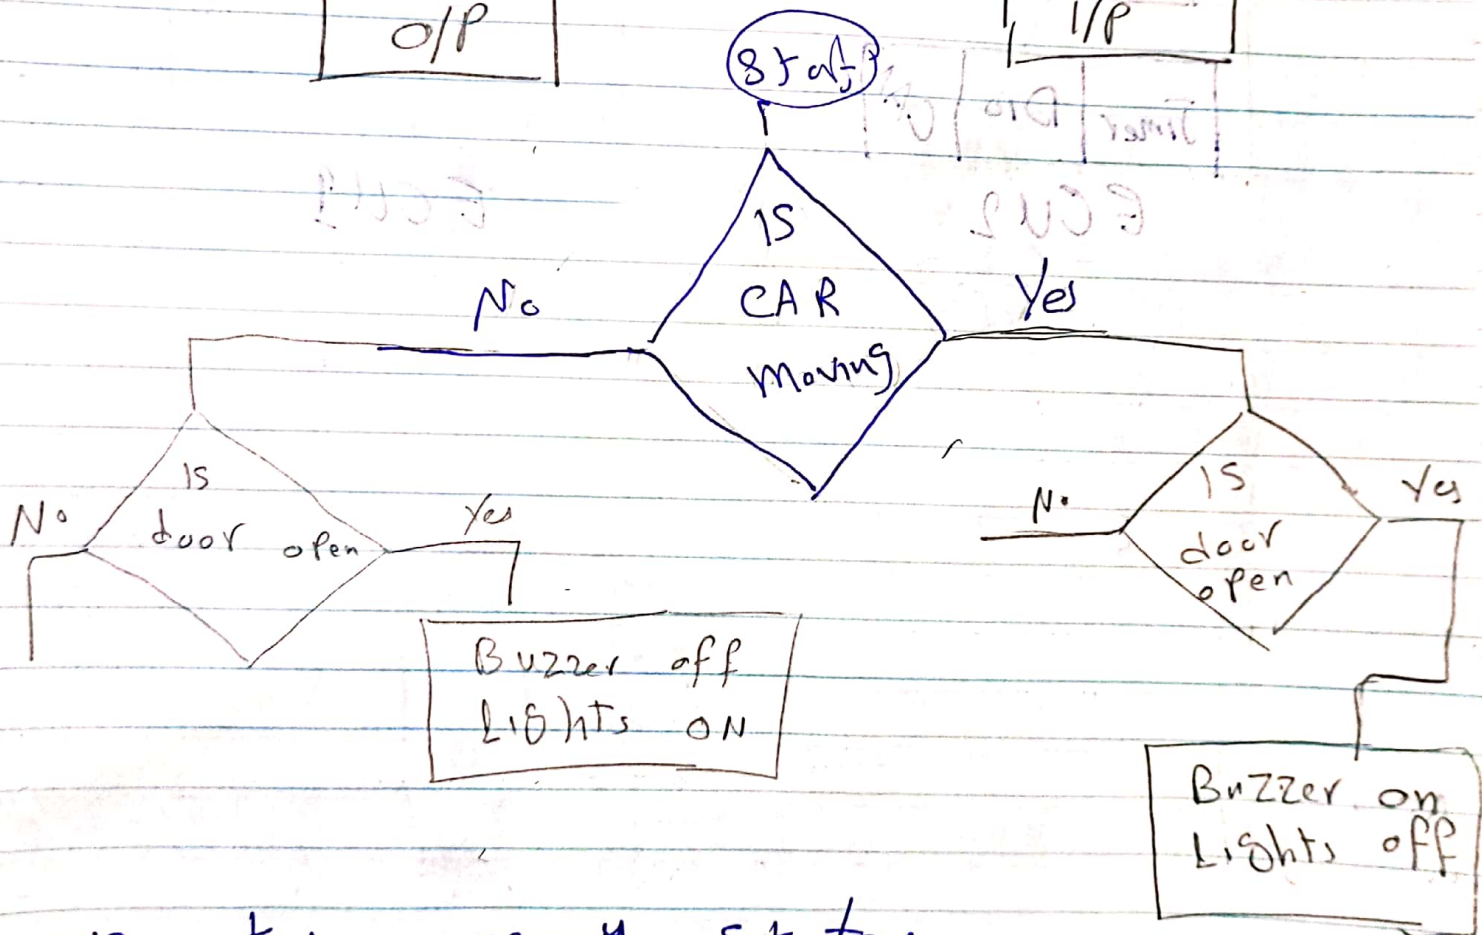 O/P
I/P
Start
Timer Dio
ECU1
ECU2
IS
CAR
moving
No
Yes
IS
door open
No
Yes
IS
door
open
No
Yes
Buzzer off
Lights ON
Buzzer on
Lights off